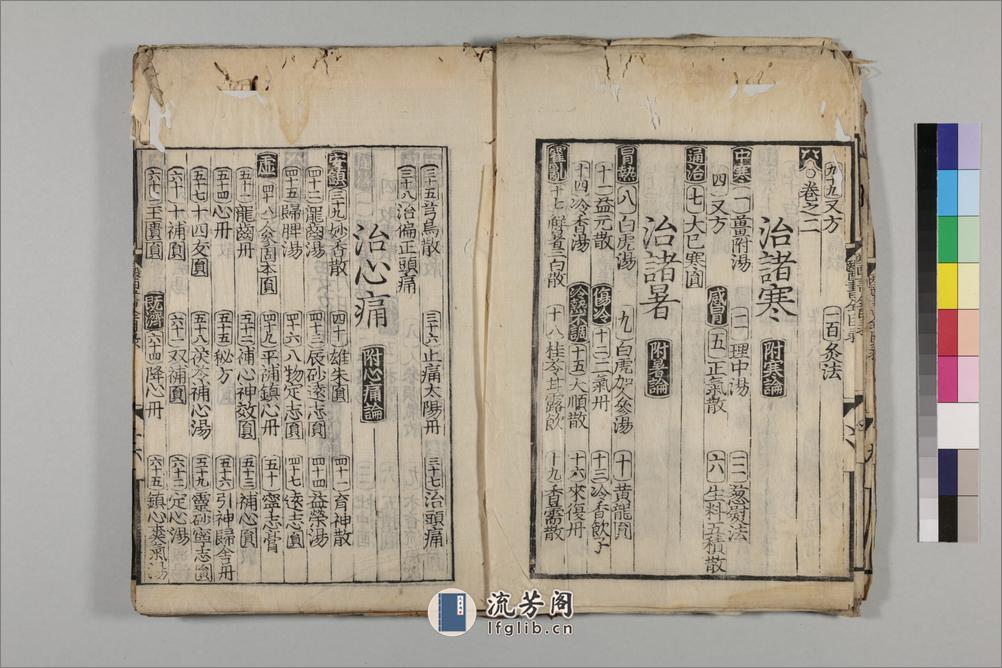 九十九又方 一百灸法
卷之二
治諸寒 附寒論
中寒 一薑附湯 二理中湯 三葱熨法
四又方 感冒 五正氣散 六生料五積散
通治 七大已寒圓
治諸暑 附暑論
冒熱 八白虎湯 九白虎加參湯 十黃龍圓
十一益元散 傷冷 十二二氣丹 十三冷香飲子
十四冷香湯 冷熱不調 十五大順散 十六來復丹
霍亂 十七解暑三白散 十八桂苓甘露飲 十九香薷散
三十五芎烏散 三十六止痛太陽丹 三十七治頭痛
三十八治偏正頭痛
治心痛 附心痛論
安鎮 三十九妙香散 四十雄朱圓 四十一育神散
四十二龍齒湯 四十三辰砂遠志圓 四十四益榮湯
四十五歸脾湯 四十六八物定志圓 四十七遠志圓
虛 四十八參固本圓 四十九平補鎮心丹 五十寧志膏
五十一龍齒丹 五十二補心神效圓 五十三補心圓
五十四心丹 五十五秘方 五十六引神歸舍丹
五十七十四友圓 五十八茯苓補心湯 五十九靈砂寧志圓
六十十補圓 六十一双補圓 六十二定心湯
六十三王賣圓 既濟 六十四降心丹 六十五鎮心爽氣湯
流芳阁
lfglib.cn